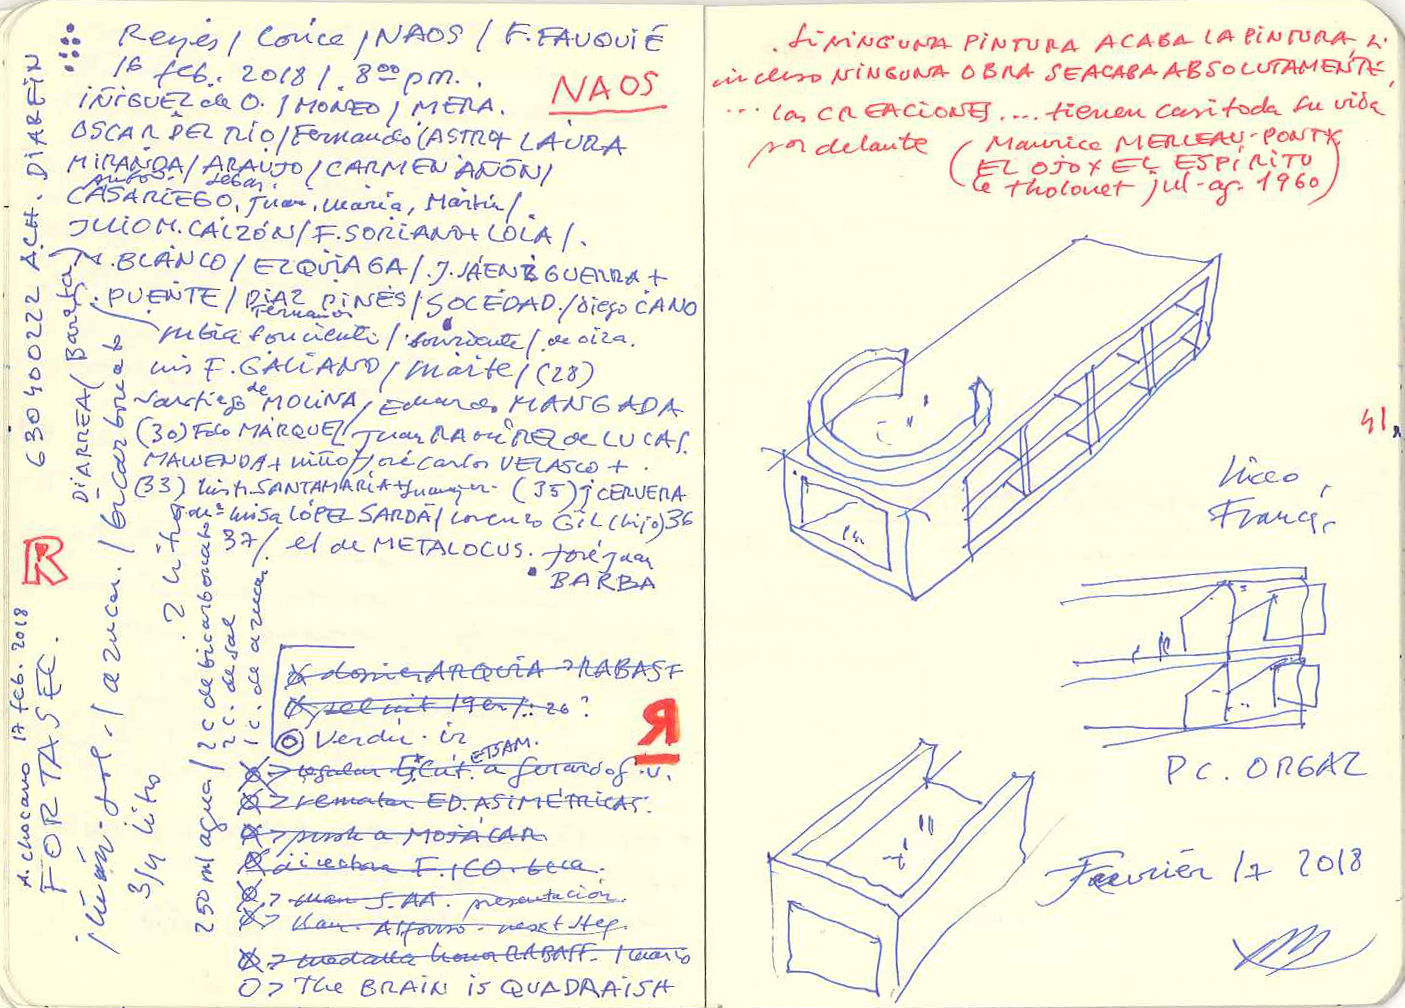 Reyes / Corice / NAOS / F. FAUQUIÉ
16 feb. 2018 / 8⁰⁰ pm.
NAOS
IÑIGUEZ de O. / MONEO / MERA.
OSCAR DEL RÍO / Fernando CASTRO + LAURA
MIRANDA / ARAUJO / CARMEN AÑÓN /
CASARIEGO, Juan, María, Martín /
JULIO M. CALZÓN / F. SORIANO + LOLA /.
M. BLANCO / EZQUIAGA / J. JAÉN & GUERRA +
C. PUENTE / DIAZ PINÉS / SOCEDAD. / Diego CANO
Fernando
rubia / sonriente / de oiza.
Luis F. GALIANO / Maite / (28)
Santiago de MOLINA / Eduardo MANGADA
(30) Fdo MÁRQUEZ / Juan RAMÍREZ de LUCAS.
MAWENDA + niño / José Carlos VELASCO + .
(33) SANTAMARÍA + Juanjo - (35) J CERVERA
Luisa LÓPEZ SARDÁ / Lorenzo GIL (hijo) 36
37 / el de METALOCUS. José Juan
BARBA
630400222 ACH. DIABEIN
DIARREA (Baretza)
R
A. chocano 17 feb. 2018
FORTASEC.
limón - sal - / azucar. / bicarbonato
3/4 litro
2 litros
250 ml agua / 2 c de bicarbonato
2 c. de sal
1 c. de azucar
dossier ARQUIA > RABASF
26 ?
Verdú - ir
> regalar a Gerardo ETSAM.
> rematar ED. ASIMÉTRICAS.
> a MOJÁCAR
directora F. ICO. beca.
> S.AA. presentación.
> Alfonso - next step.
> medalla honor RABASF. / mario
O> The BRAIN is QUADRAISH
Я
. Si NINGUNA PINTURA ACABA LA PINTURA, si
incluso NINGUNA OBRA SE ACABA ABSOLUTAMENTE,
... las CREACIONES .... tienen casi toda su vida
por delante (Maurice MERLEAU-PONTY
EL OJO Y EL ESPÍRITU
Le Tholonet jul-ag. 1960)
41.
Liceo,
Francs,
P.C. ORGAZ
Fevrier 17 2018